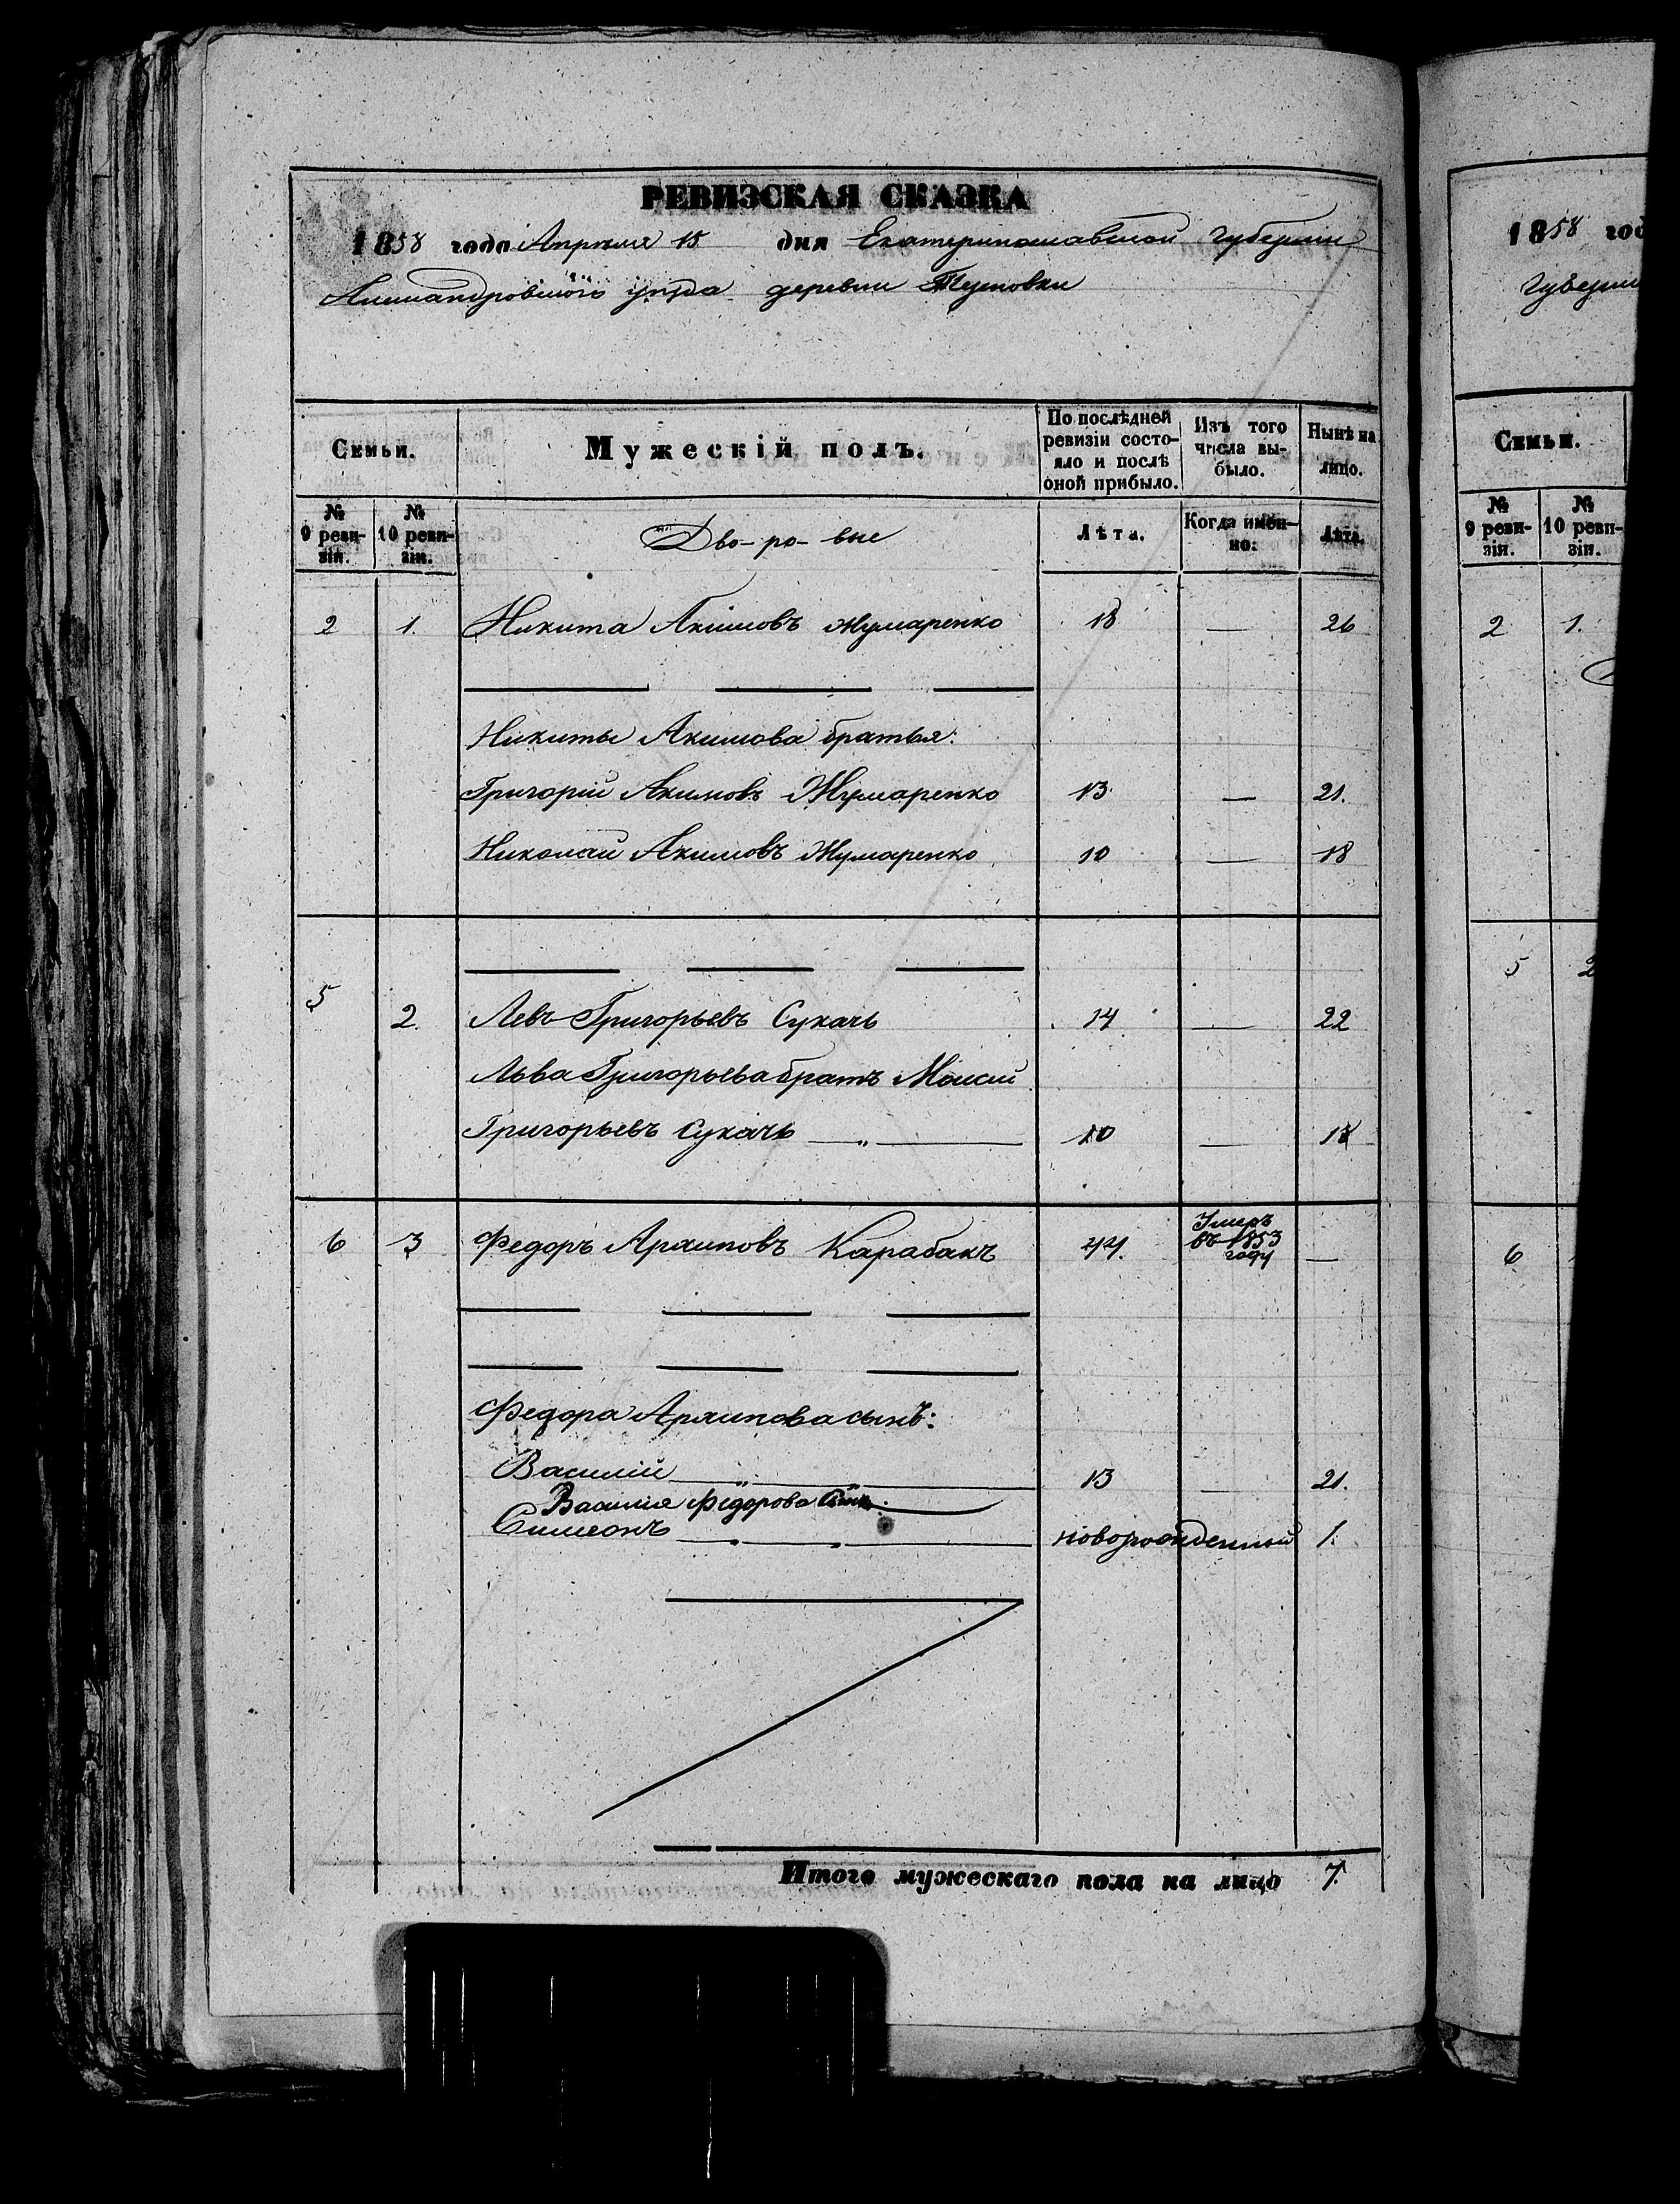 РЕВИЗСКАЯ СКАЗКА
1858 года Апрѣля 15 дня Екатеринославской Губерніи
Александровскаго уѣзда деревни
Семьи. Мужескій полъ. По послѣдней ревизіи состояло и послѣ оной прибыло. Изъ того числа выбыло. Нынѣ на лицо.
№ 9 ревизіи. № 10 ревизіи. Дво-ро-вые Лѣта. Когда именно: Лѣта.
2 1. Никита Акимовъ Жумаренко 18 — 26
Никиты Акимова братья:
Григорій Акимовъ Жумаренко 13 — 21.
Николай Акимовъ Жумаренко 10 — 18
5 2. Левъ Григорьевъ Сукачь 14 — 22
Льва Григорьева братъ Моисей
Григорьевъ Сукачь — „ — 10 — 18
6 3 Федоръ Архиповъ Карабакъ 44. Умеръ въ 1853 году —
Федора Архипова сынъ:
Василій — „ — „ — 13 — 21.
Василія Федорова сынъ:
Симеонъ новорожденный 1.
Итого мужескаго пола на лицо 7.
1858 год
Губерни
Семьи.
№ 9 ревизія. № 10 ревизіи.
2 1.
5 2
6